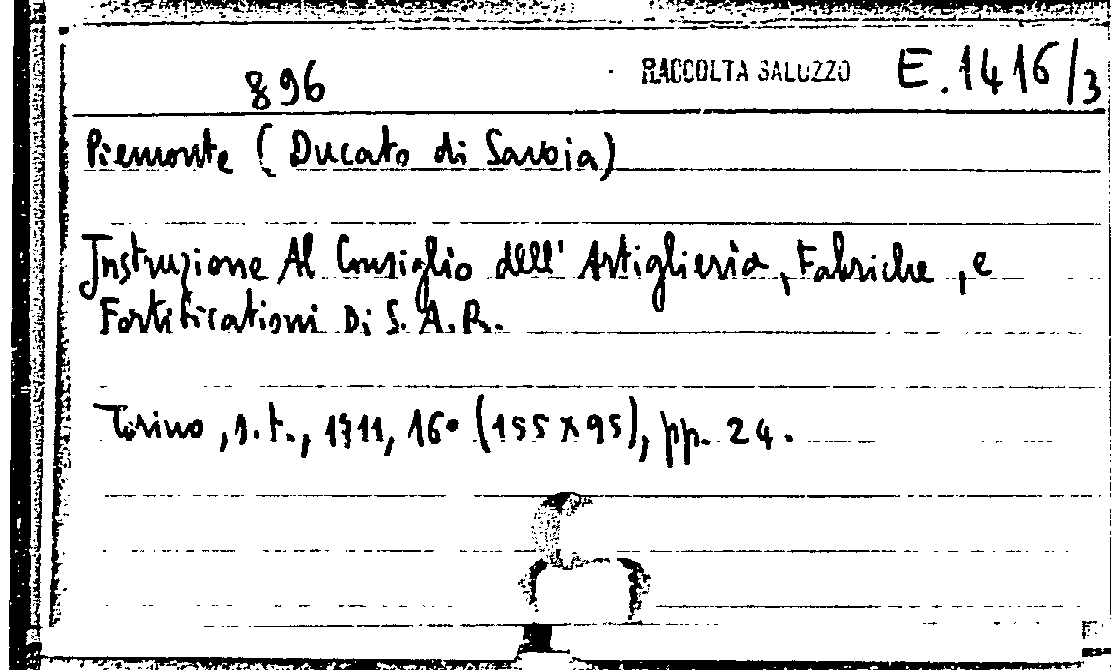 896 RACCOLTA SALUZZO E.1416/3
Piemonte (Ducato di Savoia)
Instruzione Al Consiglio dell' Artiglieria, Fabriche, e
Fortificationi Di S. A. R.
Torino, s.t., 1711, 16° (155x95), pp. 24.